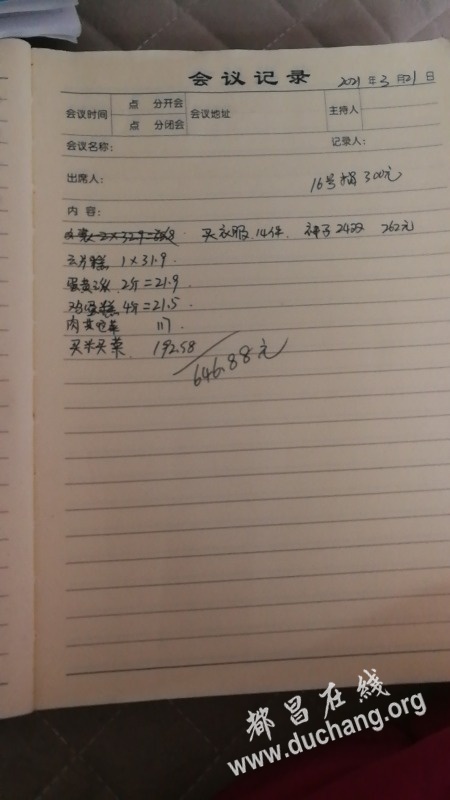 会议记录 2021年3月21日
会议时间 点 分开会 会议地址 主持人
点 分闭会
会议名称: 记录人:
出席人:
16号捐300元
内 容:
买衣服14件. 袜子24双 262元
云片糕 1×31.9
蛋黄派 2斤=21.9
鸡蛋糕 4斤=21.5
肉 117
买米买菜 192.58
646.88元
都昌在線
www.duchang.org